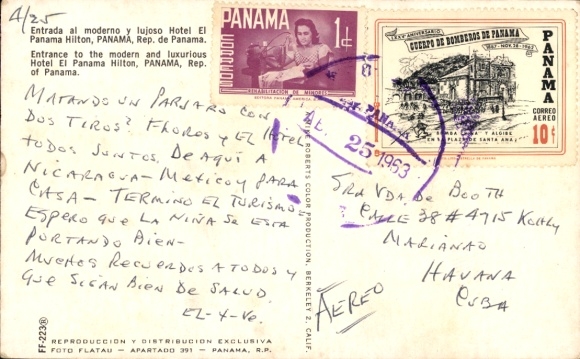 4/25
Entrada al moderno y lujoso Hotel El
Panama Hilton, PANAMA, Rep. de Panama.
Entrance to the modern and luxurious
Hotel El Panama Hilton, PANAMA, Rep.
of Panama.
MATANDO UN PAJARO CON
DOS TIROS? FLORES Y EL Hotel
TODOS JUNTOS. DE AQUÍ A
NICARAGUA - MEXICO Y PARA
CASA - TERMINO EL TURISMO.
ESPERO QUE LA NIÑA SE ESTA
PORTANDO BIEN -
MUCHOS RECUERDOS A TODOS Y
QUE SIGAN BIEN DE SALUD.
EL-X-VE.
FF-223®
REPRODUCCION Y DISTRIBUCION EXCLUSIVA
FOTO FLATAU — APARTADO 391 — PANAMA, R.P.
ROBERTS COLOR PRODUCTION, BERKELEY 2, CALIF.
PANAMA
1¢
REHABILITACION DE MENORES
LXXV ANIVERSARIO
CUERPO DE BOMBEROS DE PANAMA
1887-NOV. 28-1962
PANAMA
CORREO
AEREO
10¢
BOMBA Y ALJIBE
EN LA PLAZA DE SANTA ANA
25 1963
SRA VDA DE BOOTH
CALLE 38 # 4715 KOHLY
MARIANAO
HAVANA
CUBA
AEREO